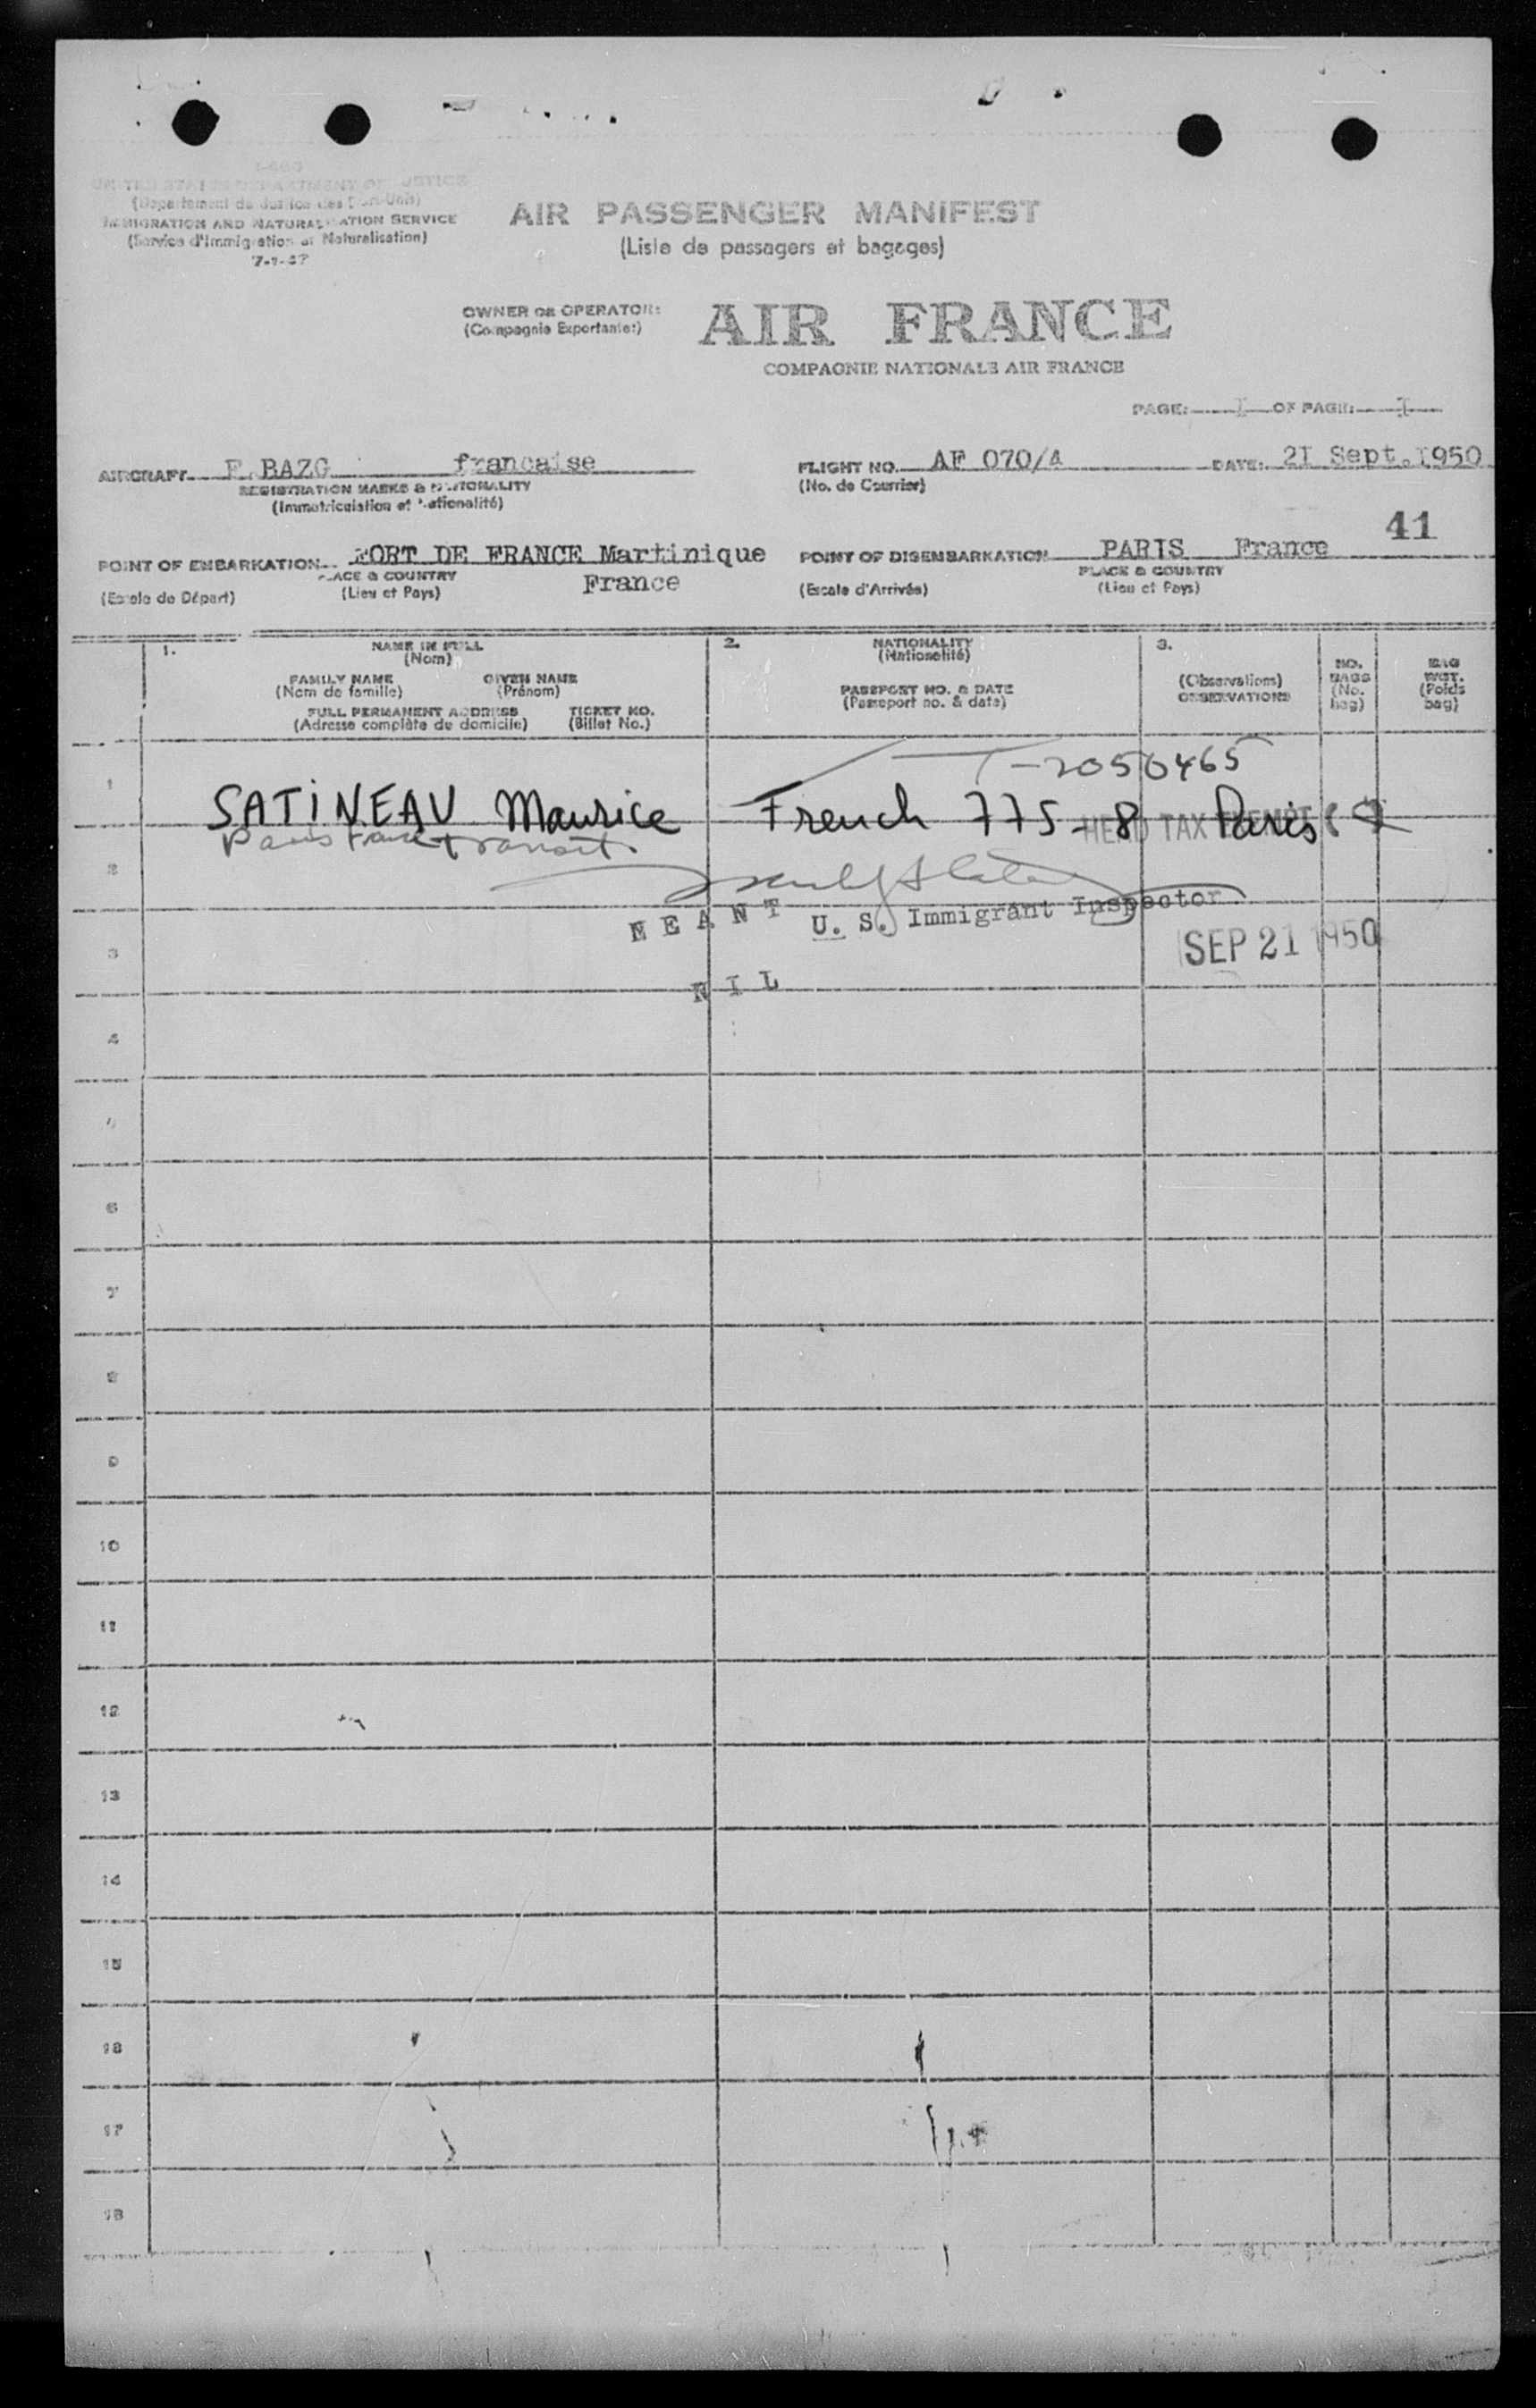 I-466
UNITED STATES DEPARTMENT OF JUSTICE
(Departement de Justice des Etats-Unis)
IMMIGRATION AND NATURALISATION SERVICE
(Service d'Immigration et Naturalisation)
7-1-47
AIR PASSENGER MANIFEST
(Liste de passagers et bagages)
OWNER OR OPERATOR:
(Compagnie Exportante:)
AIR FRANCE
COMPAGNIE NATIONALE AIR FRANCE
PAGE: I OF PAGE: I
AIRCRAFT F.BAZG francaise
REGISTRATION MARKS & NATIONALITY
(Immatriculation et Nationalité)
FLIGHT NO. AF 070/A DATE: 2I Sept.1950
(No. de Courrier)
41
POINT OF EMBARKATION FORT DE FRANCE Martinique
PLACE & COUNTRY France
(Escale de Départ) (Lieu et Pays)
POINT OF DISEMBARKATION PARIS France
PLACE & COUNTRY
(Escale d'Arrivée) (Lieu et Pays)
1. NAME IN FULL
(Nom)
FAMILY NAME GIVEN NAME
(Nom de famille) (Prénom)
FULL PERMANENT ADDRESS TICKET NO.
(Adresse complète de domicile) (Billet No.)
2. NATIONALITY
(Nationalité)
PASSPORT NO. & DATE
(Passeport no. & date)
3.
(Observations)
OBSERVATIONS
NO.
BAGS
(No.
bag)
BAG
WGT.
(Poids
bag)
T-2050465
1 SATINEAU Maurice French 775-8 Paris
HEAD TAX EXEMPT
Paris France transit
2
NEANT U. S. Immigrant Inspector
3 SEP 21 1950
NIL
4
5
6
7
8
9
10
11
12
13
14
15
16
17
18